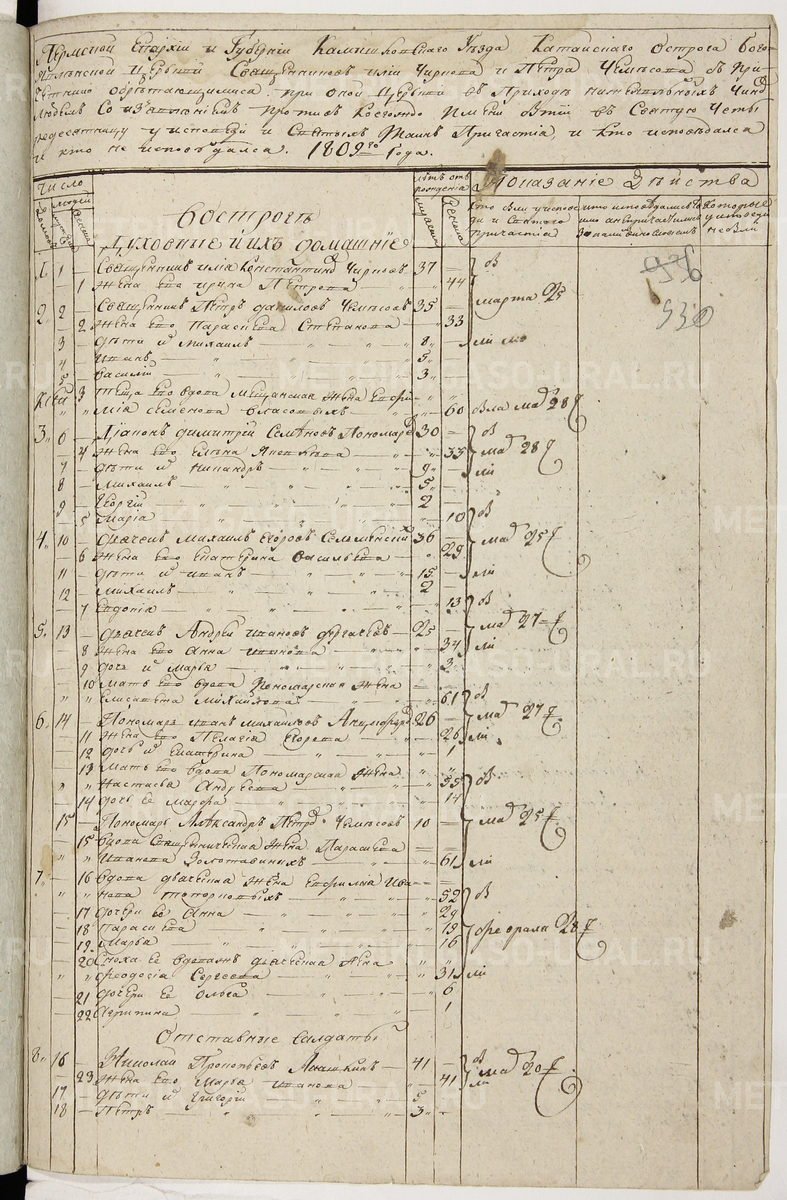 Пермской Епархіи и Губерніи Камышловскаго Уѣзда Катайскаго Острога Бого
явленской Церкви Священниковъ Иліи Чиркова и Петра Чемесова въ При
обрѣтающимся при оной Церкви въ Приходѣ нижеявленныхъ Чиновъ
Людемъ Со изъявленіемъ противъ коегождо имени бытіи въ Святую Четы
редесятницу у исповѣди и Святыхъ Таинъ Причастія, и кто исповѣдался
и кто не исповѣдался. 1809го Года.
Число
домовъ
людей
мужеска
женска
лѣтъ отъ рожденія
мужескъ
женскъ
Показаніе Дѣйства
кто были у исповѣди и Святаго Причастія
кто исповѣдались
которые у исповѣди не были
Въ острогѣ
Духовные и ихъ домашніе
1 1 — Священникъ Илія Константиновъ Чирковъ 37 въ
— 1 Жена его Ирина Петрова 44
2 2 — Священникъ Петръ Даниловъ Чемесовъ 35 — марта 25
— 2 Жена его Параскева Степанова 33
3 — дѣти ихъ Михаилъ 8
4 Иванъ 5
5 Василій 3
3 Теща его вдова Мещанская Жена Евфи
мія Семенова 60 28
3 6 — Діаконъ Димитрій Семеновъ Пономаревъ 30 — въ
— 4 Жена его Елена 35 28
7 — дѣти ихъ Никандръ 9
8 — Михаилъ 5
9 — Георгій 2
— 5 Марія 10 въ
4 10 — Дьячекъ Михаилъ Егоровъ 36 — 25
— 6 Жена его Екатерина Васильева 29
11 — дѣти ихъ Иванъ 15
12 — Михаилъ 2
— 7 Евдокія 13 въ
5 13 — Дьячекъ Андрей Ивановъ 25 — 27
— 8 Жена его Анна Иванова 34
— 9 дочь ихъ Марья 2
— 10 Мать его вдова Пономарская Жена
Елисавета Михайлова 61 въ
6 14 — Пономарь Иванъ Михайловъ 26 — 27
— 11 Жена его Пелагія Егорова 26
— 12 дочь ихъ Екатерина 1
— 13 Мать его вдова Пономарская Жена
Настасья Андреева 55 въ
— 14 дочь ее Марфа 14
15 — Пономарь Александръ Петровъ Чемесовъ 10 — 25
— 15 Вдова Священническая Жена Параскева
Иванова Золотавиныхъ 61
7 — 16 Вдова дьяческая Жена Евфимія Ива
нова Топорковыхъ 52 въ
— 17 дочери ее Анна 29
— 18 Параскева 19 февраля 28
— 19 Марья 16
— 20 Сноха ее вдовая дьяческая Жена
Феодосія Сергеева 31
— 21 дочери ее Ольга 6
— 22 Агрипина 1
Отставные Салдаты
8 16 — Николай Прокопьевъ 41 — въ
— 23 Жена его Марья Иванова 41 20
17 — дѣти ихъ Григорій 5
18 — Петръ 3